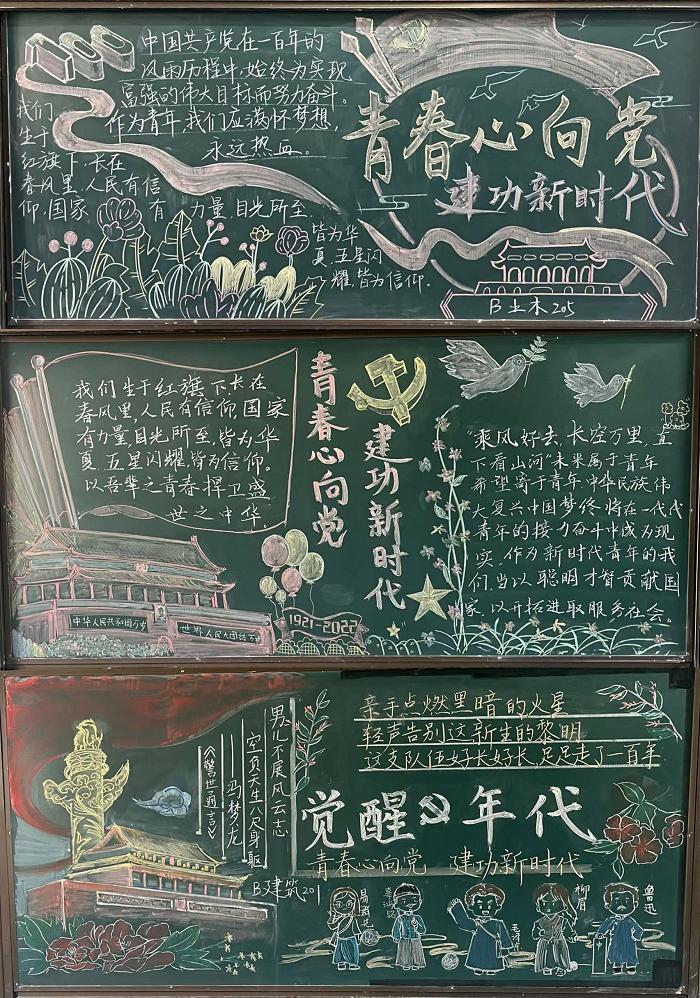 100
中国共产党在一百年的
风雨历程中,始终为实现
富强的伟大目标而努力奋斗。
作为青年,我们应满怀梦想,
永远热血。
我们
生于
红旗下,长在
春风里,人民有信
仰,国家 有 力量,目光所至,
皆为华
夏,五星闪
耀,皆为信仰.
青春心向党
建功新时代
B土木205
我们生于红旗下,长在
春风里,人民有信仰,国家
有力量,目光所至,皆为华
夏,五星闪耀,皆为信仰。
以吾辈之青春捍卫盛
世之中华
中华人民共和国万岁
世界人民大团结万岁
青春心向党
建功新时代
1921-2022
"乘风好去,长空万里,直
下看山河"未来属于青年
希望寄于青年,中华民族伟
大复兴中国梦终将在一代代
青年的接力奋斗中成为现
实。作为新时代青年的我
们,当以聪明才智贡献国
家,以开拓进取服务社会。
男儿不展风云志
空负天生八尺身躯
——冯梦龙
《警世通言》
亲手点燃黑暗的火星
轻声告别这新生的黎明
这支队伍好长好长,足足走了一百年
觉醒年代
青春心向党 建功新时代
B建筑201
柳眉
鲁迅